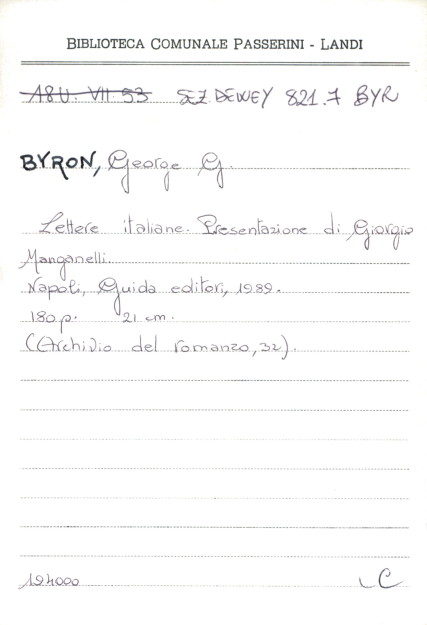 BIBLIOTECA COMUNALE PASSERINI - LANDI
18U. VII. 53 SEZ. DEWEY 821.7 BYR
BYRON, George G.
Lettere italiane. Presentazione di Giorgio
Manganelli.
Napoli, Guida editori, 1989.
180 p. 21 cm.
(Archivio del romanzo, 32).
194000 C